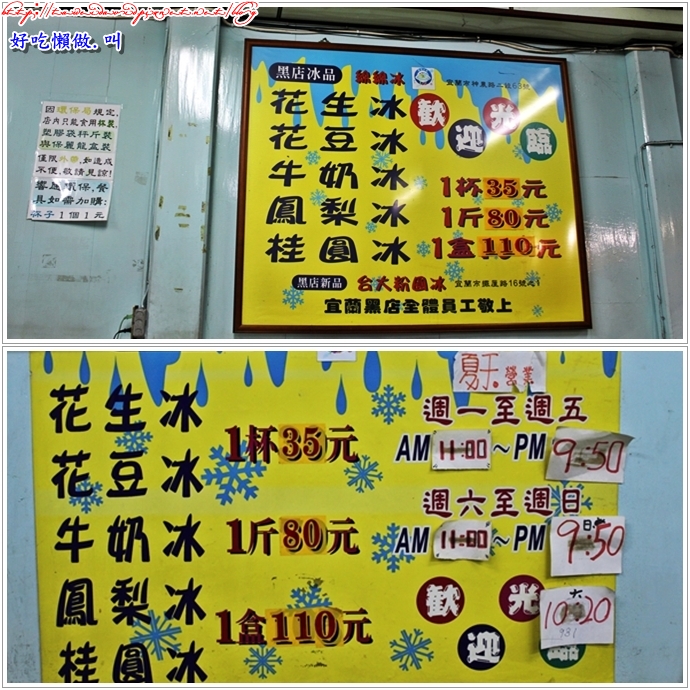 好吃懶做.叫
因環保局規定,
店內只能食用杯裝,
塑膠袋秤斤裝
與保麗龍盒裝
僅限外帶,如造成
不便,敬請見諒!
響應環保,餐
具如需加購:
杯子1個1元
黑店冰品 綿綿冰 宜蘭市神農路二段68號
花生冰
花豆冰
牛奶冰
鳳梨冰
桂圓冰
歡迎光臨
1杯35元
1斤80元
1盒110元
黑店新品 台大粉圓冰 宜蘭市鐵屋路16號之1
宜蘭黑店全體員工敬上
花生冰
花豆冰
牛奶冰
鳳梨冰
桂圓冰
1杯35元
1斤80元
1盒110元
夏天.營業
週一至週五
AM 11:00~PM 9:50
週六至週日
AM 11:00~PM 日 9:50
六 10:20
歡迎光臨